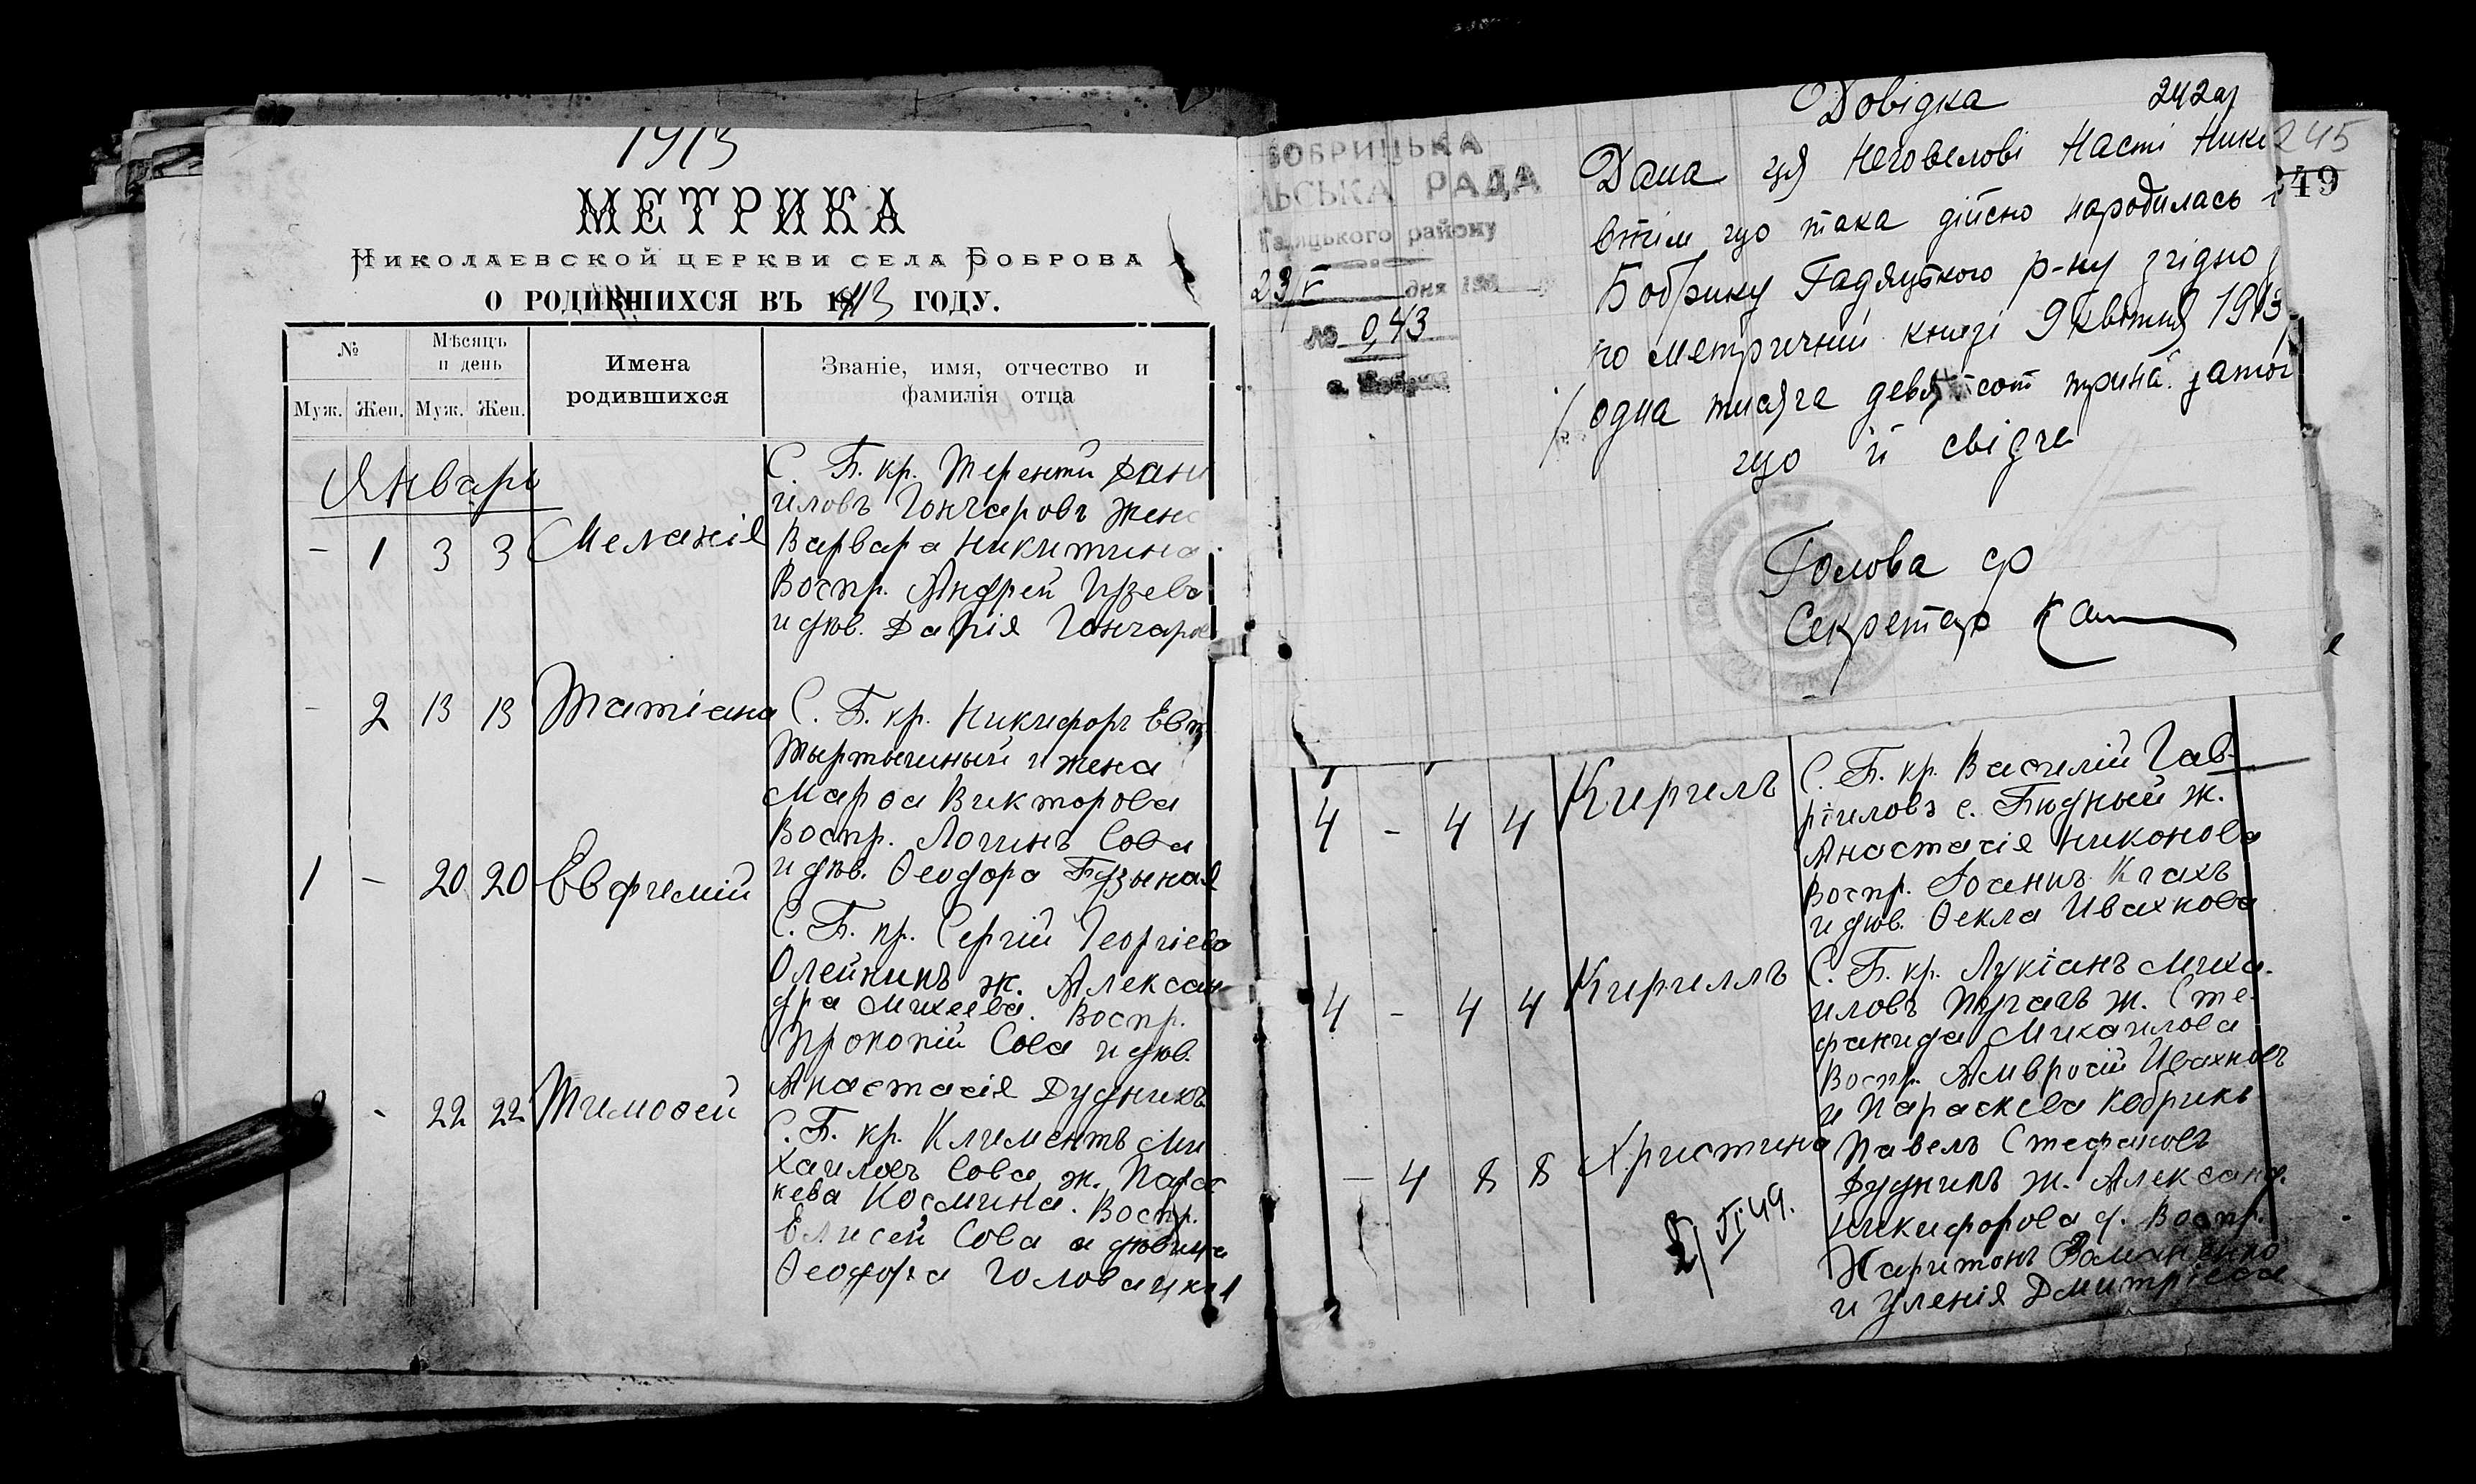 1913
МЕТРИКА
Николаевской церкви села Боброва
о родившихся въ 1913 году.
№
Мѣсяцъ и день
Имена родившихся
Званіе, имя, отчество и фамилія отца
Муж. Жен. Муж. Жен.
Январь
- 1 3 3 Меланія
С. Б. кр. Терентій Дани
иловъ Гончаровъ жена
Варвара Никитина
Воспр. Андрей
и дѣв. Дарія Гончаров
- 2 13 13 Татіана
С. Б. кр. Никифоръ Евт
и жена
Марѳа Викторова
Воспр. Логинъ Сова
и дѣв. Ѳеодора
1 - 20 20 Евфимій
С. Б. кр. Сергій Георгіевъ
Олейникъ ж. Алексан
дра Михеева. Воспр.
Прокопій Сова и дѣв.
Анастасія Дудникъ
- 22 22 Тимоѳей
С. Б. кр. Климентъ Ми
хаиловъ Сова ж. Парас
кева Космина. Воспр.
Елисей Сова и дѣвица
Ѳеодора
Довідка 242а
БОБРИЦЬКА
ЛЬСЬКА РАДА
Гадяцького району
23/V дня 193
№ 043
Дана ця Насті Ники
втім що така дійсно народилась
Бобрику Гадяцького р-ну згідно
по метричній книзі 9 квітня 1913
одна тисяча девятсот трина.
що й свідче
Голова
Секретар
245
249
4 - 4 4 Кирилъ
С. Б. кр. Василій Гав-
ріиловъ с. ж.
Анастасія Никонова
Воспр. Іоаннъ
и дѣв. Ѳекла Ивахнова
4 - 4 4 Кириллъ
С. Б. кр. Лукіанъ Миха-
иловъ ж. Сте-
фанида Михаилова
Воспр. Амвросій Ивахновъ
и Параскева Кобрикъ
- 4 8 8 Христина
Павелъ Стефановъ
Дудникъ ж. Александ.
Никифорова Воспр.
Харитонъ
и Уленія Дмитріева
2/VI 49.